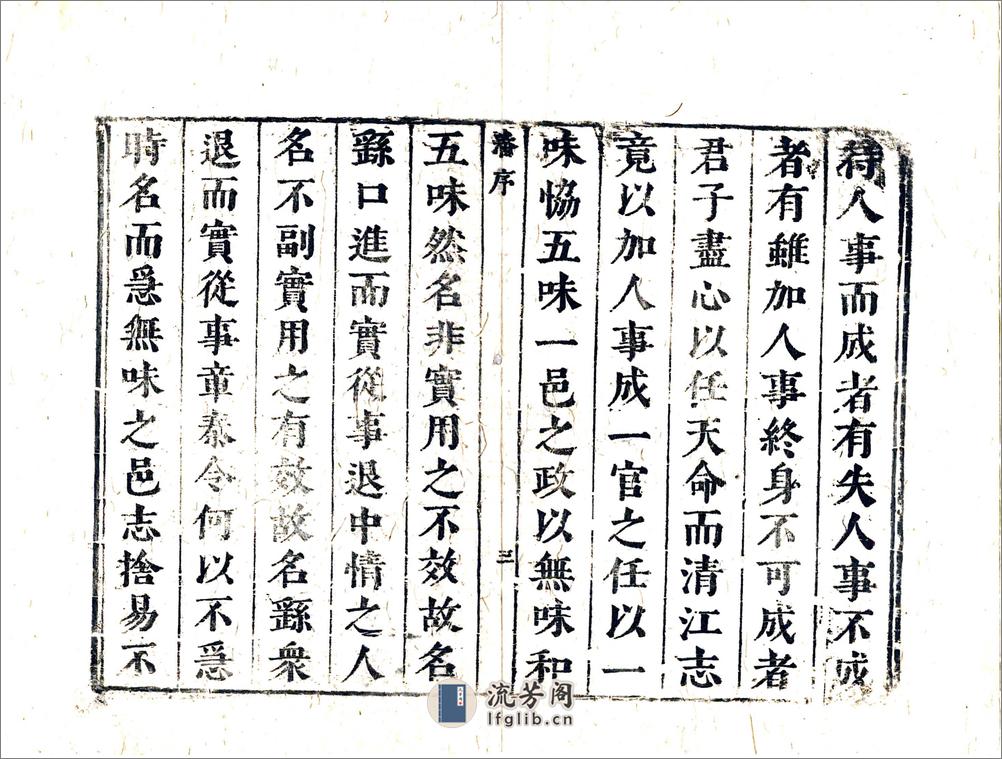 待人事而成者有失人事不成
者有雖加人事終身不可成者
君子盡心以任天命而清江志
竟以加人事成一官之任以一
味恊五味一邑之政以無味和
潘序
三
五味然名非實用之不效故名
繇口進而實從事退中情之人
名不副實用之有效故名繇衆
退而實從事章秦令何以不爲
時名而爲無味之邑志捨易不
流芳阁
lfglib.cn